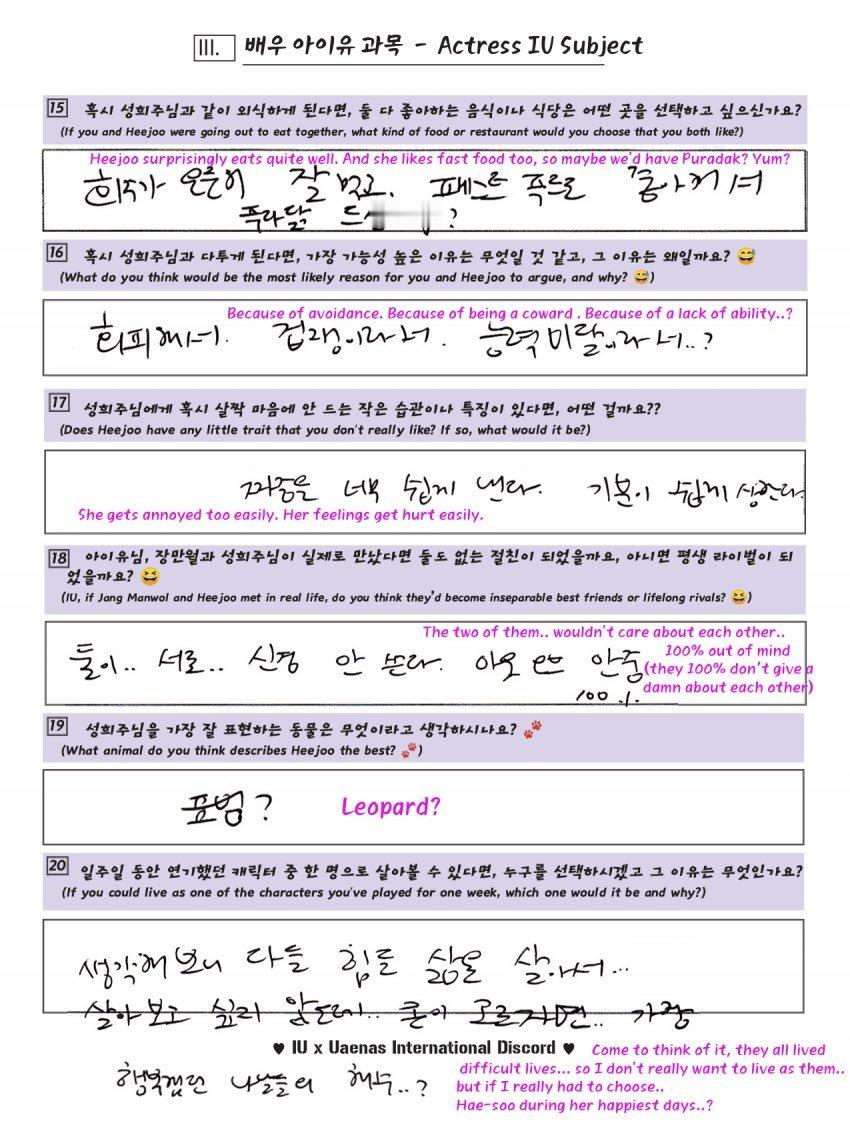 III. 배우 아이유 과목 - Actress IU Subject
15 혹시 성희주님과 같이 외식하게 된다면, 둘 다 좋아하는 음식이나 식당은 어떤 곳을 선택하고 싶으신가요?
(If you and Heejoo were going out to eat together, what kind of food or restaurant would you choose that you both like?)
Heejoo surprisingly eats quite well. And she likes fast food too, so maybe we'd have Puradak? Yum?
희주가 은근히 잘 먹고. 패스트 푸드도 좋아해서
푸라닭 ?
16 혹시 성희주님과 다투게 된다면, 가장 가능성 높은 이유는 무엇일 것 같고, 그 이유는 왜일까요? 😅
(What do you think would be the most likely reason for you and Heejoo to argue, and why? 😅)
Because of avoidance. Because of being a coward . Because of a lack of ability..?
회피해서. 겁쟁이라서. 능력 미달이라서..?
17 성희주님에게 혹시 살짝 마음에 안 드는 작은 습관이나 특징이 있다면, 어떤 걸까요??
(Does Heejoo have any little trait that you don't really like? If so, what would it be?)
짜증을 너무 쉽게 낸다. 기분이 쉽게 상한다.
She gets annoyed too easily. Her feelings get hurt easily.
18 아이유님, 장만월과 성희주님이 실제로 만났다면 둘도 없는 절친이 되었을까요, 아니면 평생 라이벌이 되
었을까요? 😆
(IU, if Jang Manwol and Heejoo met in real life, do you think they'd become inseparable best friends or lifelong rivals? 😆)
The two of them.. wouldn't care about each other..
100% out of mind
(they 100% don't give a
damn about each other)
둘이.. 서로.. 신경 안 쓴다. 아웃 오브 안중
100%
19 성희주님을 가장 잘 표현하는 동물은 무엇이라고 생각하시나요? 🐾
(What animal do you think describes Heejoo the best? 🐾)
표범? Leopard?
20 일주일 동안 연기했던 캐릭터 중 한 명으로 살아볼 수 있다면, 누구를 선택하시겠고 그 이유는 무엇인가요?
(If you could live as one of the characters you've played for one week, which one would it be and why?)
생각해 보니 다들 힘든 삶을 살아서...
살아보고 싶진 않은데.. 굳이 고르자면.. 가장
♥ IU x Uaenas International Discord ♥
행복했던 나날들의 해수..?
Come to think of it, they all lived
difficult lives... so I don't really want to live as them..
but if I really had to choose..
Hae-soo during her happiest days..?